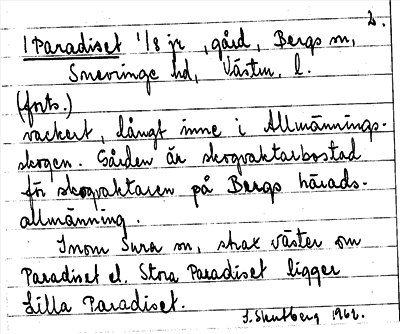 2.
1 Paradiset 1/8 jr, gård, Bergs sn,
Snevringe hd, Västm. l.
(forts.)
vackert, långt inne i Allmännings-
skogen. Gården är skogvaktarbostad
för skogvaktaren på Bergs härads-
allmänning.
Inom Sura sn, strax väster om
Paradiset el. Stora Paradiset ligger
Lilla Paradiset.
1962.